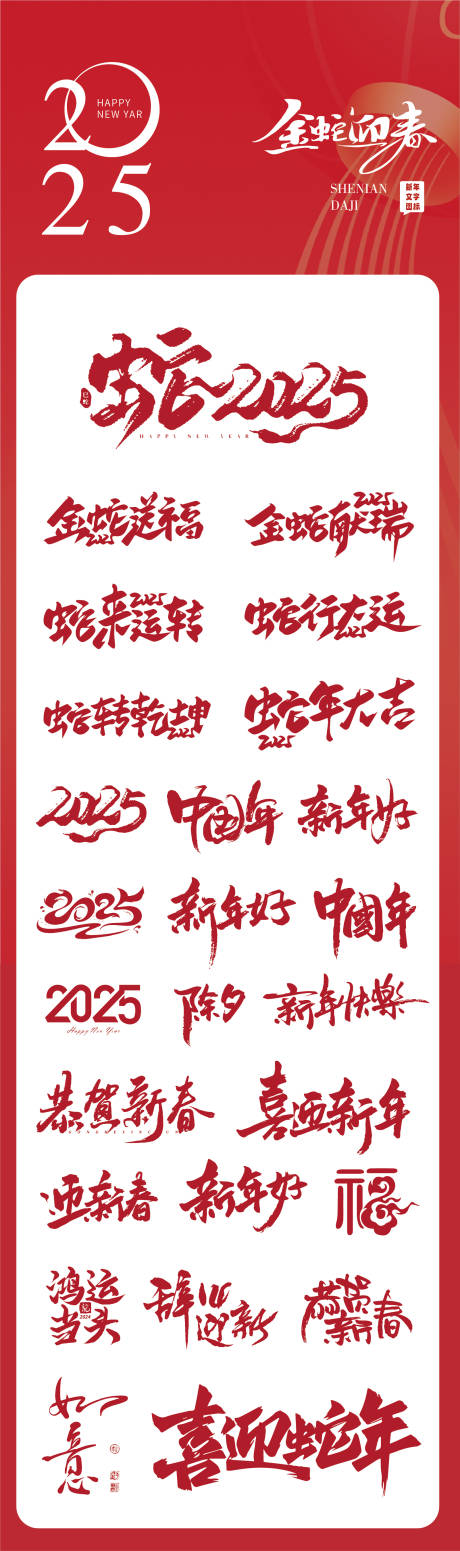 2025
HAPPY
NEW YAR
金蛇迎春
SHENIAN
DAJI
新年
文字
图标
蛇2025
HAPPY NEW YEAR
金蛇送福
2025
金蛇献瑞
2025
蛇来运转
2025
蛇行大运
2025
蛇转乾坤
2025
蛇年大吉
2025
2025
中国年
新年好
2025
新年好
中國年
2025
Happy New Year
除夕
新年快樂
恭賀新春
喜迎新年
迎新春
新年好
福
鸿运
当头
2024
辞旧迎新
恭贺
新春
如意
喜迎蛇年